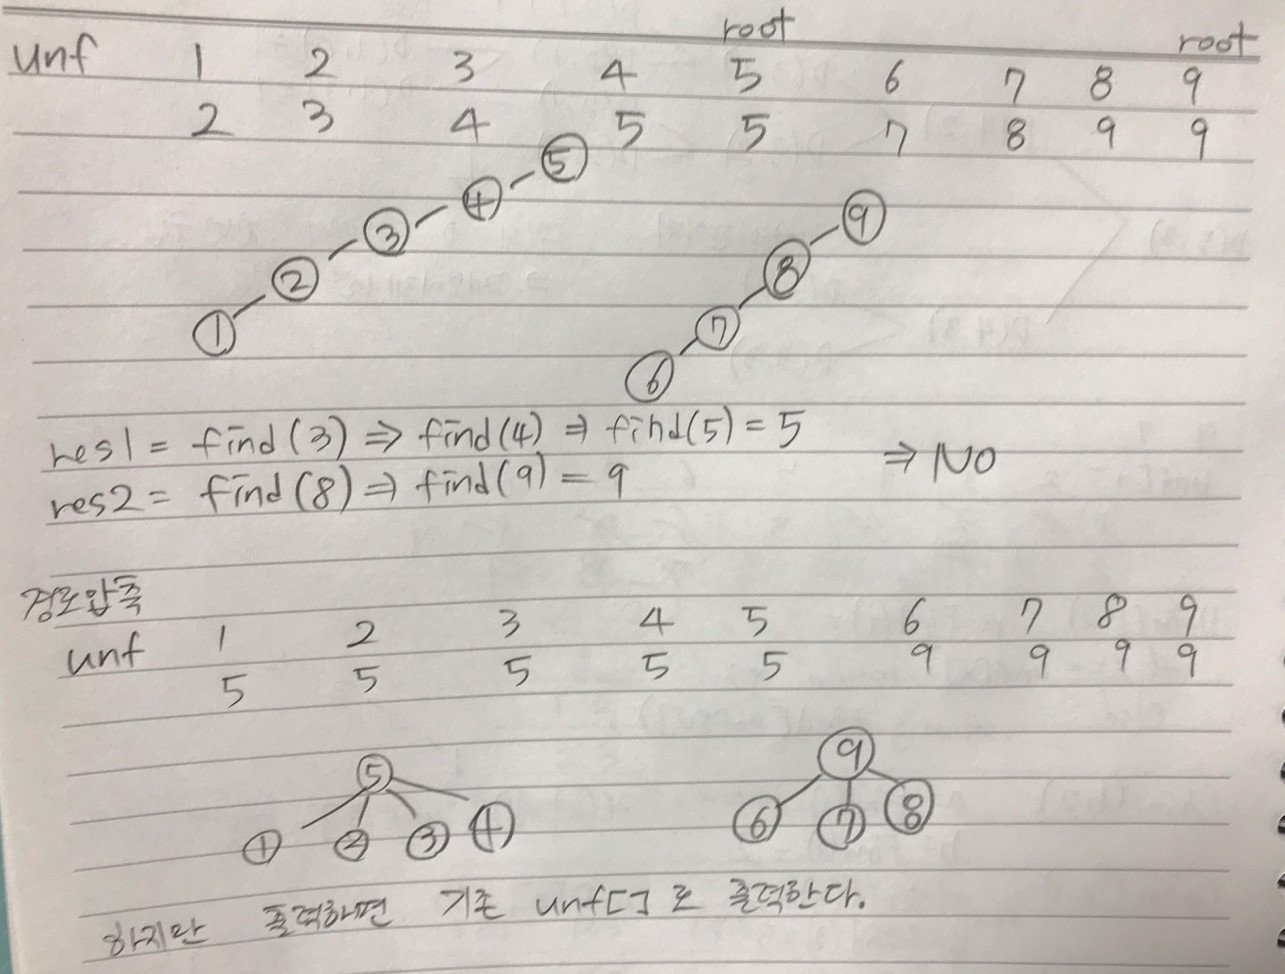 root root
unf 1 2 3 4 5 6 7 8 9
2 3 4 5 5 7 8 9 9
5
4
3
2
1
9
8
7
6
res1 = find(3) ⇒ find(4) ⇒ find(5) = 5
⇒ NO
res2 = find(8) ⇒ find(9) = 9
경로압축
unf 1 2 3 4 5 6 7 8 9
5 5 5 5 5 9 9 9 9
5 9
1 2 3 4 6 7 8
하지만 출력하면 기존 unf[]로 출력한다.